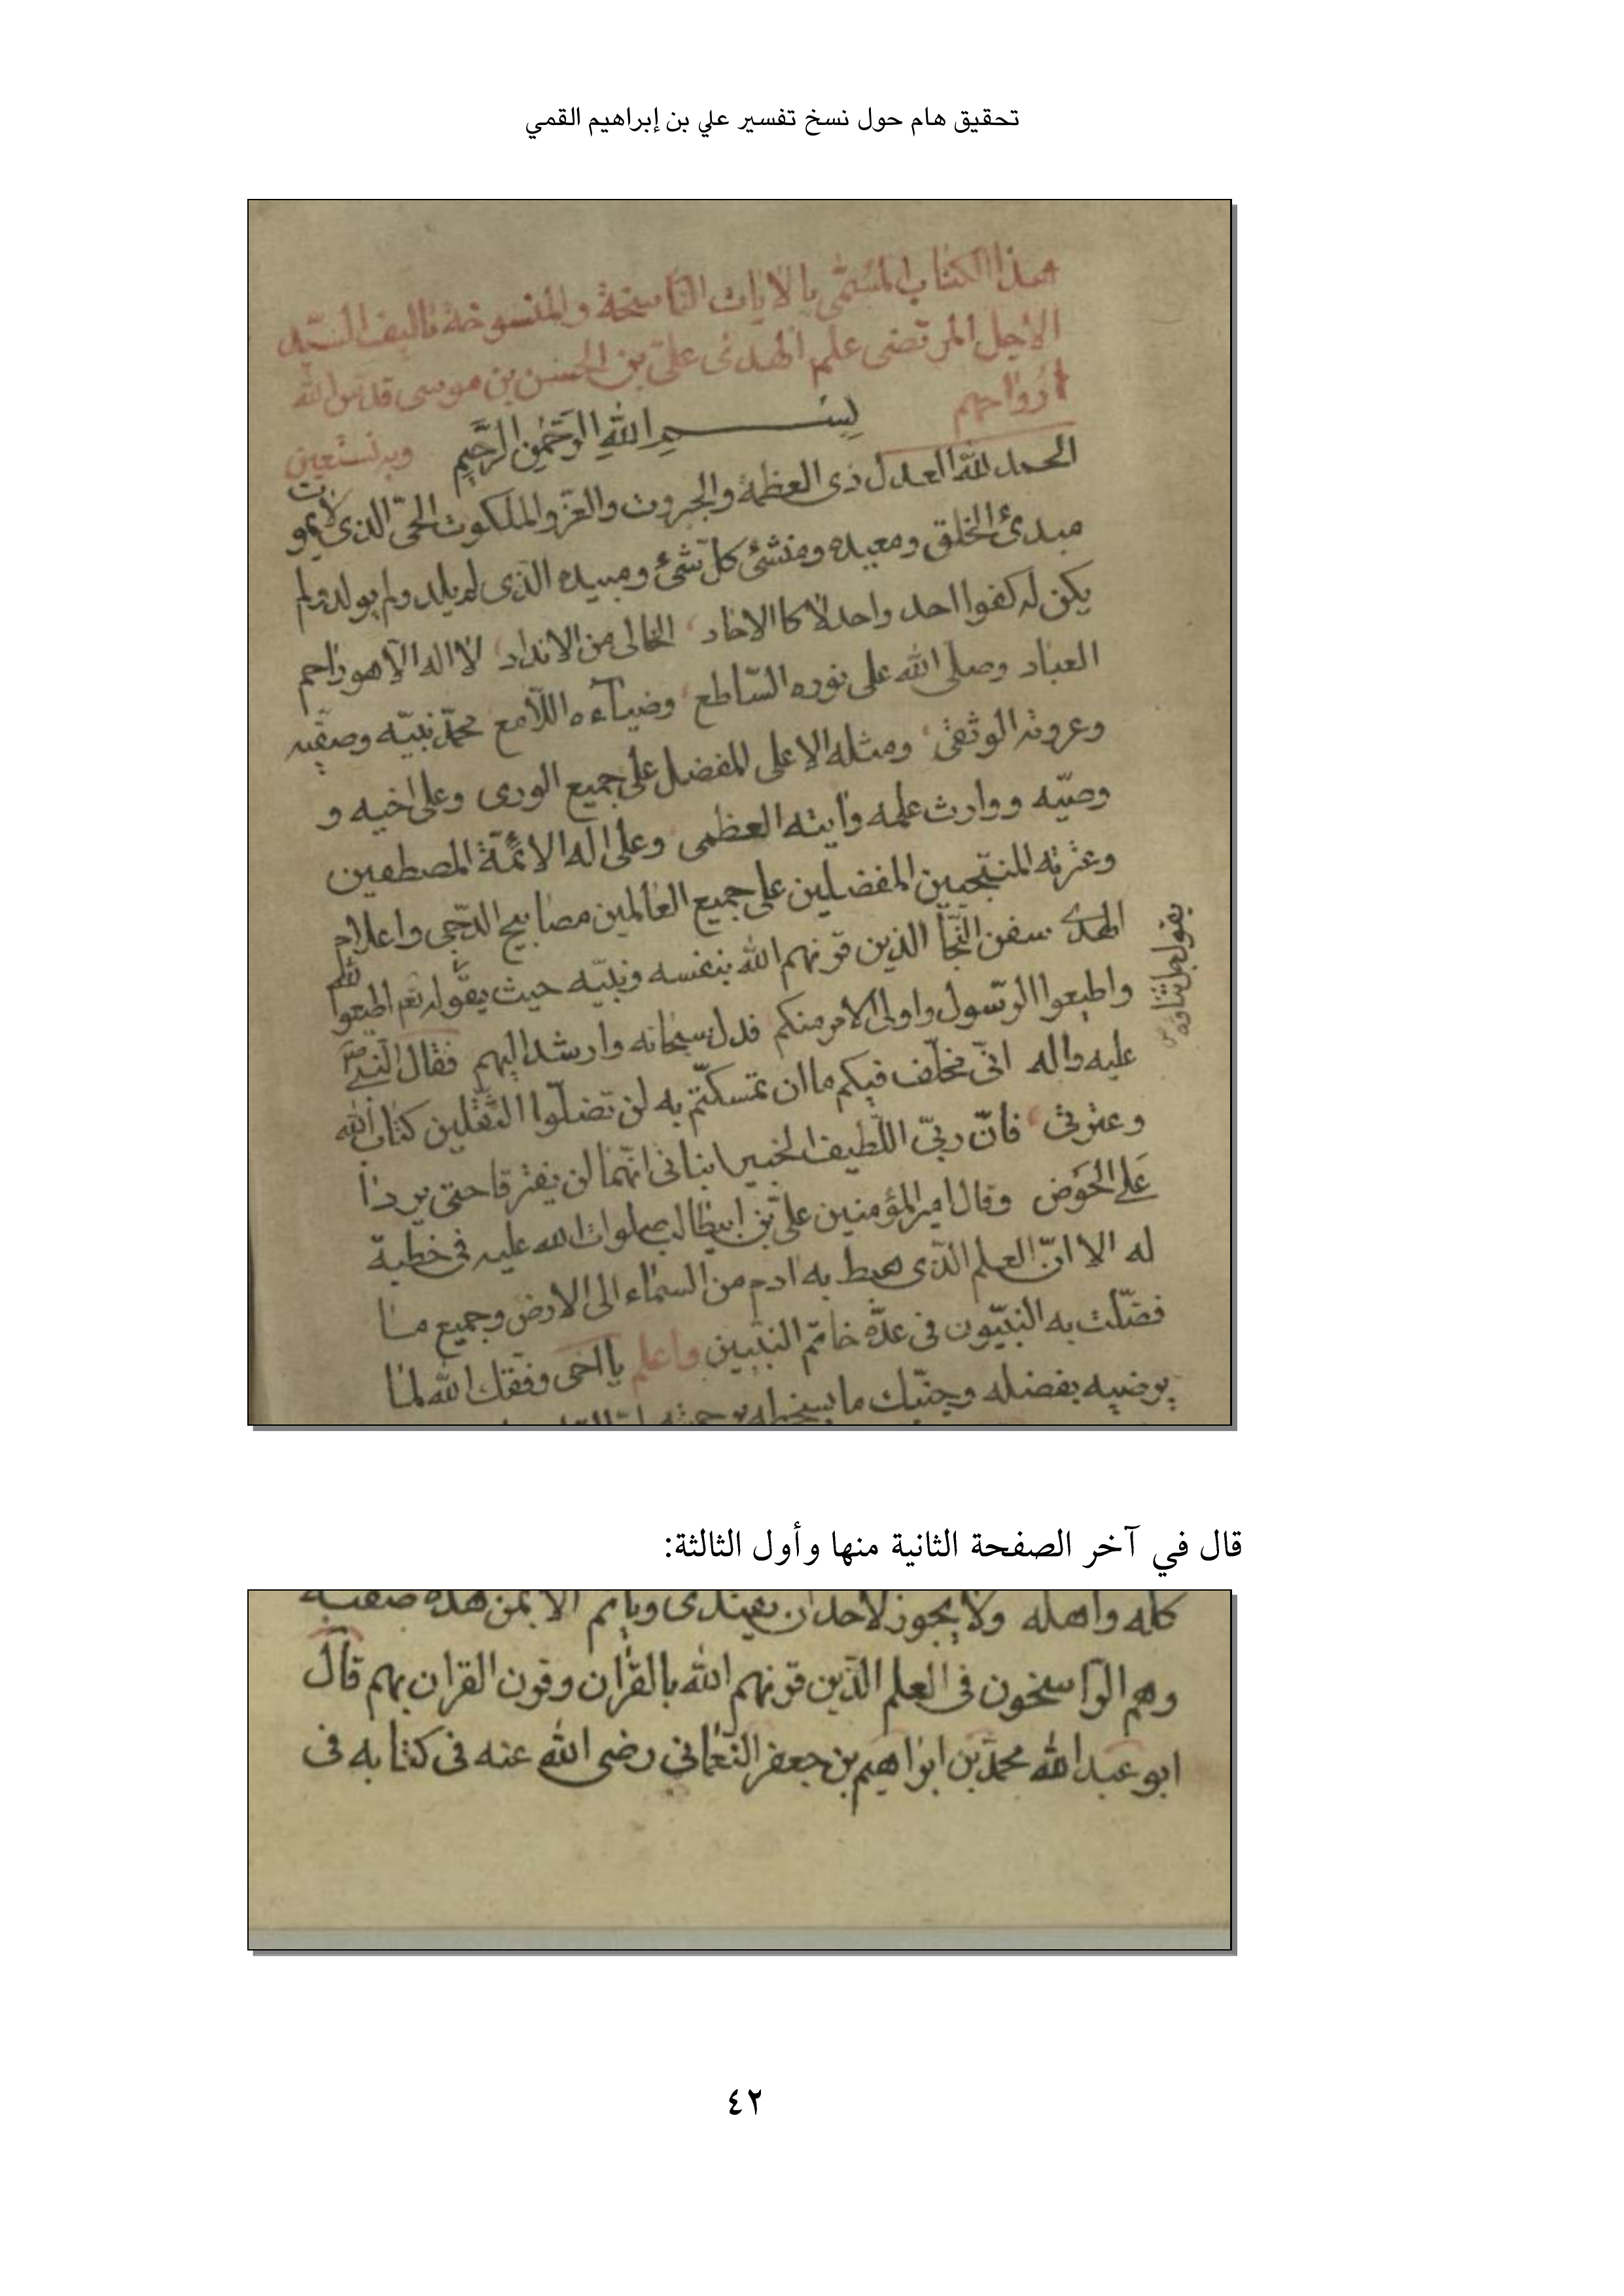 تحقيق هام حول نسخ تفسير علي بن إبراهيم القمي
هذا الكتاب المسمى بالايات الناسخة والمنسوخة تاليف السيد
الاجل المرتضى علم الهدى علي بن الحسن بن موسى قدس الله
ارواحهم
بسم الله الرحمن الرحيم وبه نستعين
الحمد لله العدل ذى العظمة والجبروت والعز والملكوت الحى الذى لا يموت
مبدئ الخلق ومعيده ومنشئ كل شئ ومبيده الذى لم يلد ولم يولد ولم
يكن له كفوا احد واحد لا كالاحاد الخالى من الانداد لا اله الا هو راحم
العباد وصلى الله على نوره الساطع وضيآءه اللامع محمد نبيه وصفيه
وعروته الوثقى ومثله الاعلى المفضل على جميع الورى وعلى اخيه و
وصيه ووارث علمه وايته العظمى وعلى اله الائمة المصطفين
وعترته المنتجبين المفضلين على جميع العالمين مصابيح الدجى واعلام
الهدى سفن النجا الذين قرنهم الله بنفسه ونبيه حيث يقول اطيعوا الله
يقول جل ثناؤه
واطيعوا الرسول واولى الامر منكم فدل سبحانه وارشد اليهم فقال النبي صلى
عليه واله انى مخلف فيكم ما ان تمسكتم به لن تضلوا الثقلين كتاب الله
وعترتى فان ربى اللطيف الخبير انبانى انهما لن يفترقا حتى يردا
على الحوض وقال امير المؤمنين على بن ابيطالب صلوات الله عليه فى خطبة
له الا ان العلم الذى هبط به ادم من السماء الى الارض وجميع ما
فضلت به النبيون فى عدة خاتم النبيين واعلم يا اخى وفقك الله لما
يرضيه بفضله وجنبك ما يسخطه برحمته
قال في آخر الصفحة الثانية منها وأول الثالثة:
كله واهله ولا يجوز لاحد ان يقتدى وياتم الا بمن هذه صفته
وهم الراسخون فى العلم الذين قرنهم الله بالقران وقرن القران بهم قال
ابو عبد الله محمد بن ابراهيم بن جعفر النعمانى رضى الله عنه فى كتابه فى
٤٢